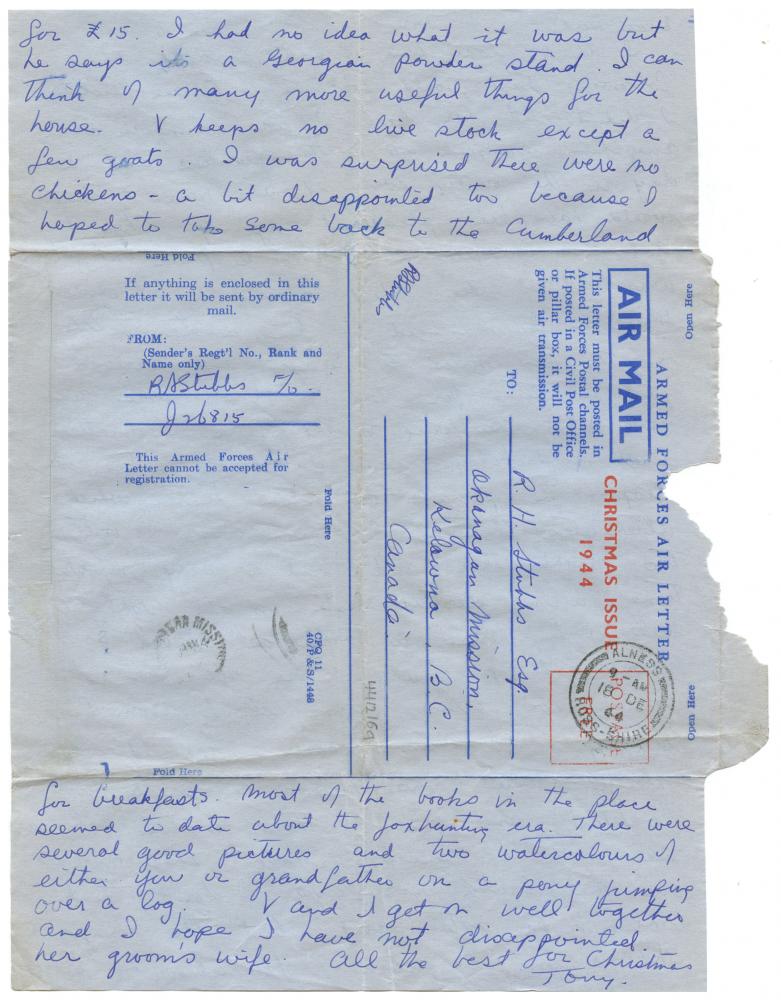 for £15. I had no idea what it was but
he says its a Georgian powder stand. I can
think of many more useful things for the
house. V keeps no live stock except a
few goats. I was surprised there were no
chickens - a bit disappointed too because I
hoped to take some back to the Cumberland
Fold Here
If anything is enclosed in this
letter it will be sent by ordinary
mail.
FROM:
(Sender's Regt'l No., Rank and
Name only)
RAStubbs F/O.
J26815
This Armed Forces Air
Letter cannot be accepted for
registration.
Fold Here
CPO 11
40/P & S/1448
Open Here
ARMED FORCES AIR LETTER
Open Here
AIR MAIL
CHRISTMAS ISSUE
1944
This letter must be posted in
Armed Forces Postal channels.
If posted in a Civil Post Office
or pillar box, it will not be
given air transmission.
POSTAGE
FREE
ALNESS
9 - AM
18 DE
44
ROSS-SHIRE
TO:
R. H. Stubbs Esq
Okanagan Mission,
Kelowna, B.C.
Canada.
RAStubbs
Fold Here
for breakfasts. Most of the books in the place
seemed to date about the foxhunting era. There were
several good pictures and two watercolours of
either you or grandfather on a pony jumping
over a log. V and I get on well together
and I hope I have not disappointed
her groom's wife. All the best for Christmas
Tony.